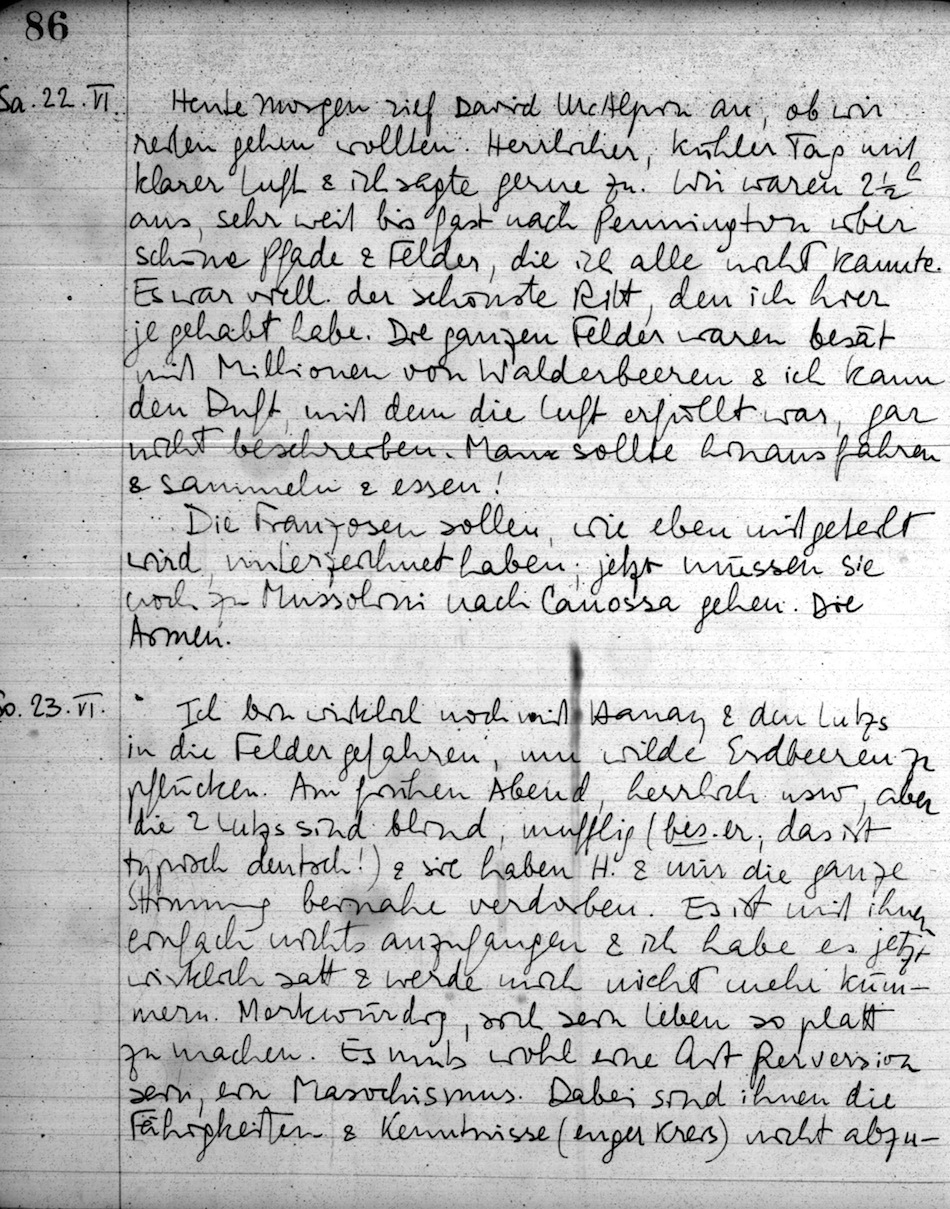 86
Sa. 22. VI. Heute morgen rief David McAlpin an, ob wir
reiten gehen wollten. Herrlicher, kühler Tag mit
klarer Luft & ich sagte gerne zu. Wir waren 2½ h
aus, sehr weit bis fast nach Pennington über
schöne Pfade & Felder, die ich alle nicht kannte.
Es war viell. der schönste Ritt, den ich hier
je gehabt habe. Die ganzen Felder waren besät
mit Millionen von Walderbeeren & ich kann
den Duft, mit dem die Luft erfüllt war, gar
nicht beschreiben. Man sollte hinausfahren
& sammeln & essen!
Die Franzosen sollen, wie eben mitgeteilt
wird, unterzeichnet haben; jetzt müssen sie
noch zu Mussolini nach Canossa gehen. Die
Armen.
So. 23. VI. Ich bin wirklich noch mit Hanay & den Lutzs
in die Felder gefahren, um wilde Erdbeeren zu
pflücken. Am frühen Abend, herrlich usw, aber
die 2 Lutzs sind blind, mufflig (bes. er; das ist
typisch deutsch!) & sie haben H. & mir die ganze
Stimmung beinahe verdorben. Es ist mit ihnen
einfach nichts anzufangen & ich habe es jetzt
wirklich satt & werde mich nicht mehr küm-
mern. Merkwürdig, sich sein Leben so platt
zu machen. Es muss wohl eine Art Perversion
sein, ein Masochismus. Dabei sind ihnen die
Fähigkeiten & Kenntnisse (enger Kreis) nicht abzu-